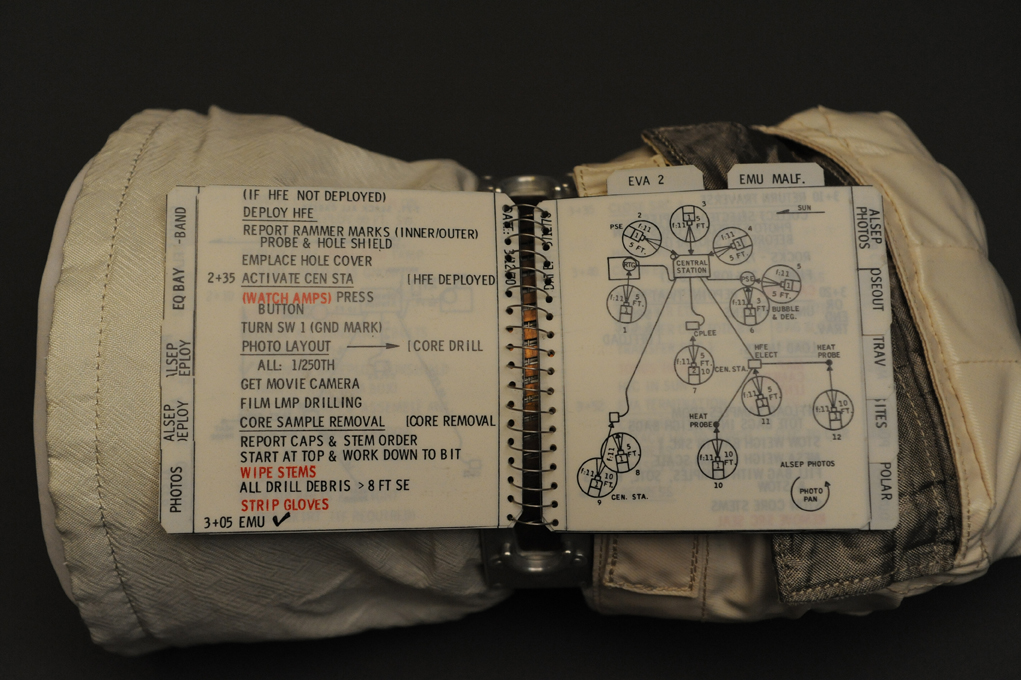 (IF HFE NOT DEPLOYED)
DEPLOY HFE
REPORT RAMMER MARKS (INNER/OUTER)
PROBE & HOLE SHIELD
EMPLACE HOLE COVER
2+35 ACTIVATE CEN STA [HFE DEPLOYED
(WATCH AMPS) PRESS
BUTTON
TURN SW 1 (GND MARK)
PHOTO LAYOUT → [CORE DRILL
ALL: 1/250TH
GET MOVIE CAMERA
FILM LMP DRILLING
CORE SAMPLE REMOVAL [CORE REMOVAL
REPORT CAPS & STEM ORDER
START AT TOP & WORK DOWN TO BIT
WIPE STEMS
ALL DRILL DEBRIS >8 FT SE
STRIP GLOVES
3+05 EMU ✓
-BAND
EQ BAY
ALSEP
DEPLOY
ALSEP
DEPLOY
PHOTOS
EVA 2
EMU MALF.
SUN
3
f:11 5 FT.
2
PSE
f:11 5 FT.
4
f:11 5 FT.
CENTRAL
STATION
RTG
f:11 5 FT.
1
PSE
5
f:11 5 FT.
BUBBLE
& DEG.
f:11 5 FT.
6
CPLEE
f:11 5 FT. 10
7
CEN. STA.
HFE
ELECT
HEAT
PROBE
f:11 5 FT.
11
f:11 10 FT.
12
HEAT
PROBE
f:11 10 FT.
10
f:11 5 FT.
8
f:11 10 FT.
9
CEN. STA.
ALSEP PHOTOS
PHOTO
PAN
ALSEP
PHOTOS
OSEOUT
TRAV
ITES
POLAR